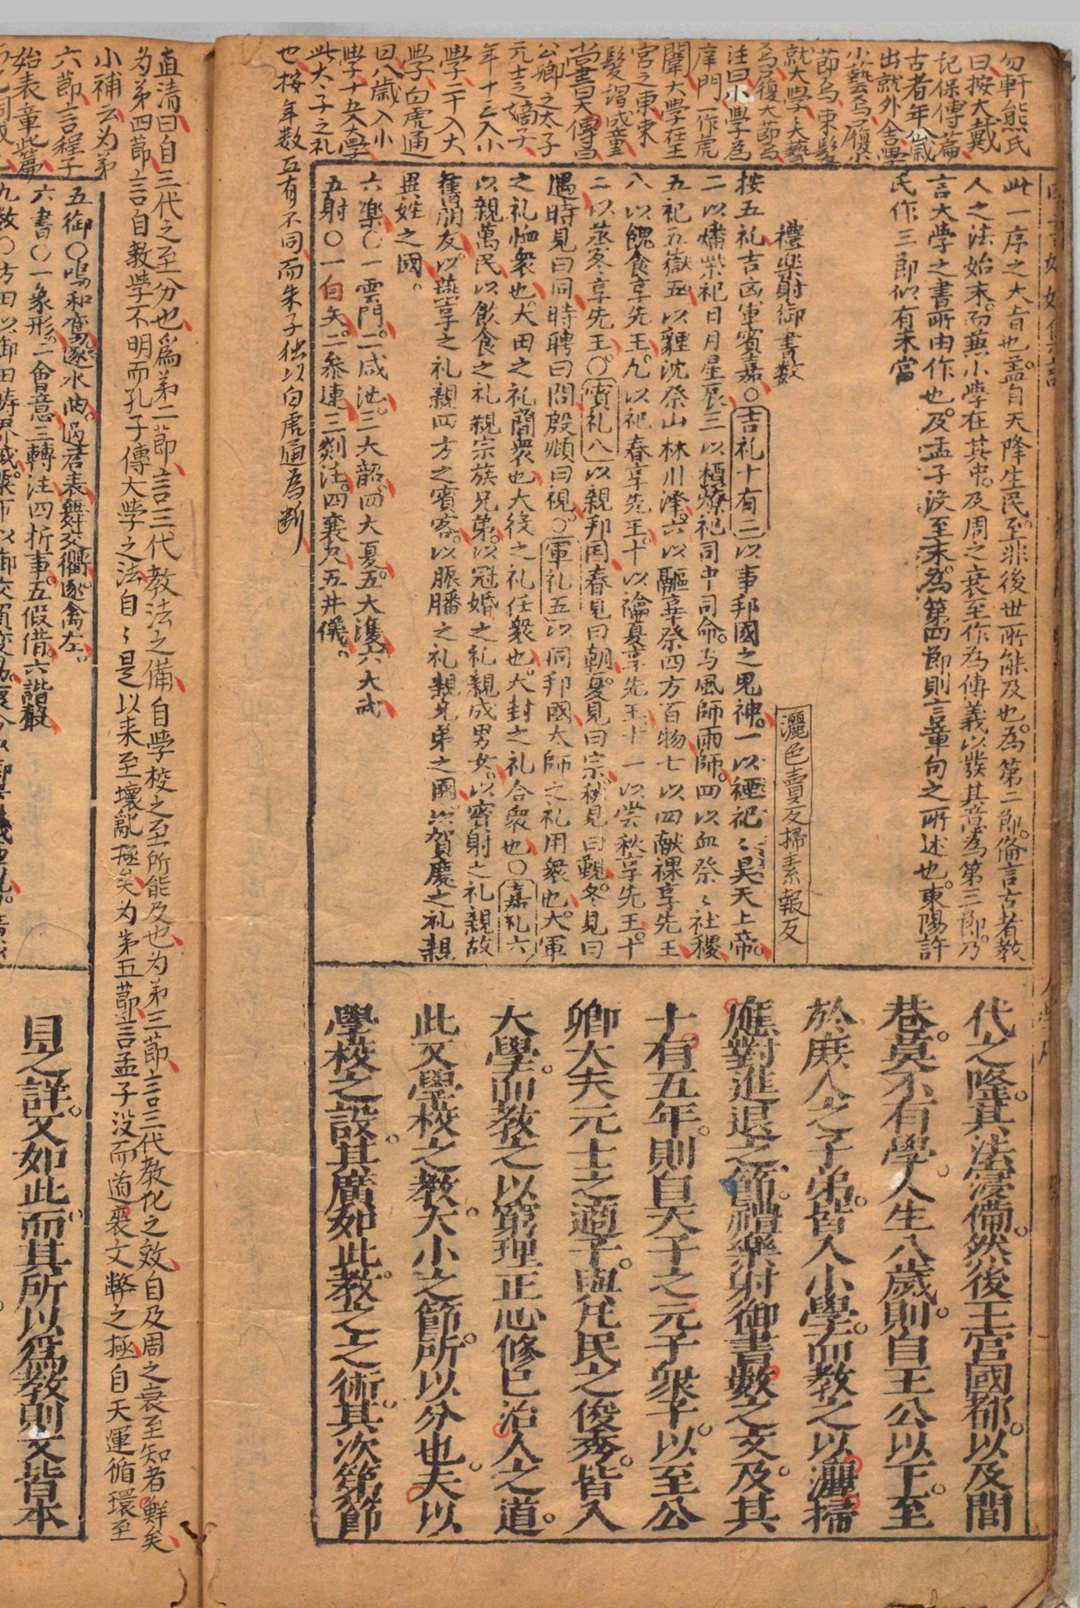 勿軒熊氏
曰按大戴
記保傅篇
古者年八歲
出就外舍學
小藝焉履小
節焉束髮
就大學大藝
焉履大節焉
注曰小學為
庠門一作虎
闈大學在王
宮之東束
髮謂成童
尚書大傳曰
公卿之太子
元士之嫡子
年十三入小
學二十入大
學白虎通
曰八歲入小
學十五入大學
此太子之礼
也按年数五有不同而朱子独以白虎通為断
此一序之大旨也盖自天降生民至非後世所能及也為第二節俻言古者教
人之法始末而無小学在其中及周之衰至作為傳義以發其意為第三節乃
言大學之書所由作也及孟子沒至末為第四節則言章句之所述也東陽許
氏作三節似有未當
禮樂射御書數
灑色賣反掃素報反
按五礼吉凶軍賓嘉○吉礼十有二以事邦國之鬼神一以禋祀〻昊天上帝
二以燔柴祀日月星辰三以槱燎祀司中司命与風師雨師四以血祭〻社稷
五祀五嶽五以貍沈祭山林川澤六以驅辜祭四方百物七以四献祼享先王
八以饋食享先王九以祀春享先王十以禴夏享先王十一以尝秋享先王十
二以蒸冬享先王○賓礼八以親邦国春見曰朝夏見曰宗秋見曰覲冬見曰
遇時見曰同時聘曰問殷頫曰視○軍礼五以同邦國大師之礼用衆也大軍
之礼恤衆也大田之礼簡衆也大役之礼任衆也大封之礼合衆也○嘉礼六
以親萬民以飲食之礼親宗族兄弟以冠婚之礼親成男女以賓射之礼親故
舊朋友以燕享之礼親四方之賓客以脤膰之礼親兄弟之國以賀慶之礼親
異姓之國
六楽○一雲門二咸池三大韶四大夏五大濩六大武
五射○一白矢二參連三剡注四襄尺五井儀
代之隆其法寖備然後王宮國都以及閭
巷莫不有學人生八歲則自王公以下至
於庶人之子弟皆入小學而教之以灑掃
應對進退之節禮樂射御書數之文及其
十有五年則自天子之元子衆子以至公
卿大夫元士之適子與凡民之俊秀皆入
大學而教之以窮理正心修己治人之道
此又學校之教大小之節所以分也夫以
學校之設其廣如此教之之術其次第節
直清曰自三代之至分也爲第二節言三代教法之備自学校之至所能及也为第三節言三代教化之效自及周之衰至知者鮮矣
为第四節言自教学不明而孔子傳大学之法自〻是以来至壞亂極矣为第五節言孟子没而道裂文弊之極自天運循環至
小補云为第
六節言程子
始表章此篇
五御○鳴和鸞逐水曲過君表舞交衢逐禽左
六書○一象形二會意三轉注四折事五假借六諧聲
見之詳又如此而其所以爲教則又皆本